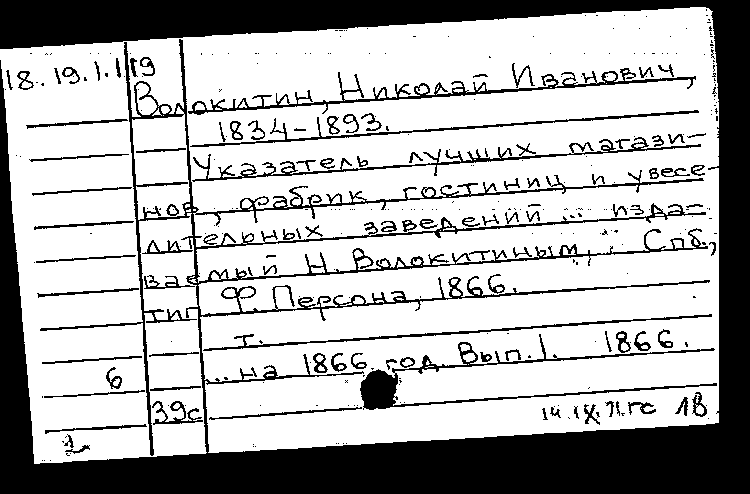 18.19.1.119
Волокитин, Николай Иванович,
1834-1893.
Указатель лучших магази-
нов, фабрик, гостиниц и увесе-
лительных заведений ... изда-
ваемый Н. Волокитиным, Спб.,
тип. Ф. Персона, 1866.
т.
... на 1866 год. Вып. 1. 1866.
6
39с
2
14.IX.71.гс 1В